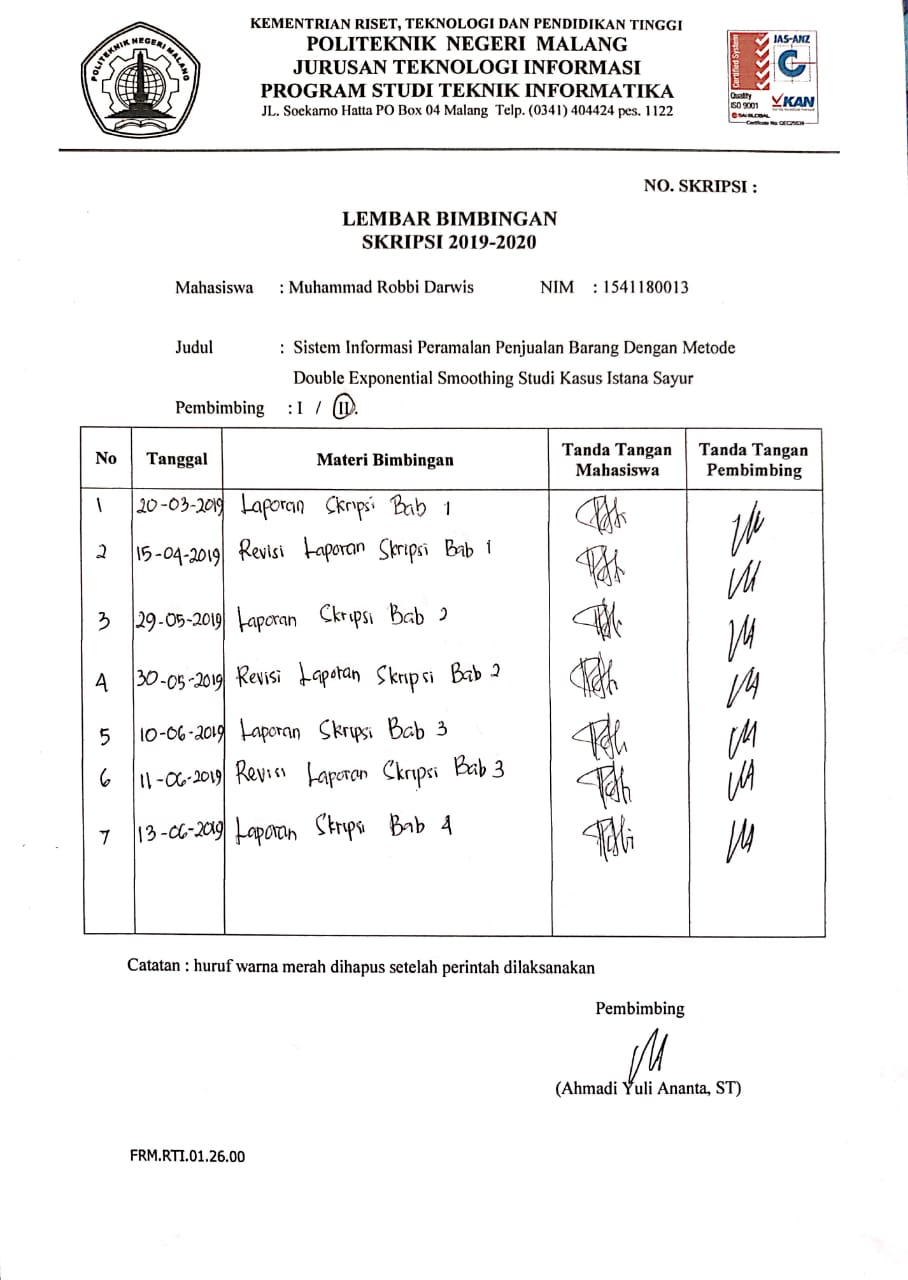 KEMENTRIAN RISET, TEKNOLOGI DAN PENDIDIKAN TINGGI
POLITEKNIK NEGERI MALANG
JURUSAN TEKNOLOGI INFORMASI
PROGRAM STUDI TEKNIK INFORMATIKA
JL. Soekarno Hatta PO Box 04 Malang Telp. (0341) 404424 pes. 1122
POLITEKNIK NEGERI MALANG
Certified System
JAS-ANZ
Quality
ISO 9001
KAN
SAI GLOBAL
NO. SKRIPSI :
LEMBAR BIMBINGAN
SKRIPSI 2019-2020
Mahasiswa : Muhammad Robbi Darwis NIM : 1541180013
Judul : Sistem Informasi Peramalan Penjualan Barang Dengan Metode
Double Exponential Smoothing Studi Kasus Istana Sayur
Pembimbing : I / II.
No Tanggal Materi Bimbingan Tanda Tangan Mahasiswa Tanda Tangan Pembimbing
1 20-03-2019 Laporan Skripsi Bab 1
2 15-04-2019 Revisi Laporan Skripsi Bab 1
3 29-05-2019 Laporan Skripsi Bab 2
4 30-05-2019 Revisi Laporan Skripsi Bab 2
5 10-06-2019 Laporan Skripsi Bab 3
6 11-06-2019 Revisi Laporan Skripsi Bab 3
7 13-06-2019 Laporan Skripsi Bab 4
Catatan : huruf warna merah dihapus setelah perintah dilaksanakan
Pembimbing
(Ahmadi Yuli Ananta, ST)
FRM.RTI.01.26.00